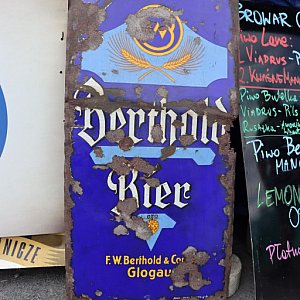 Berthold
Bier
F.W. Berthold & Co
Glogau
NICZE
BROWAR
Piwo Lane:
1. VIADRUS - P
2. KWAŚNE MAN
Piwo Butelka
VIADRUS - RIS
PIWO BE
MAN
LEMON